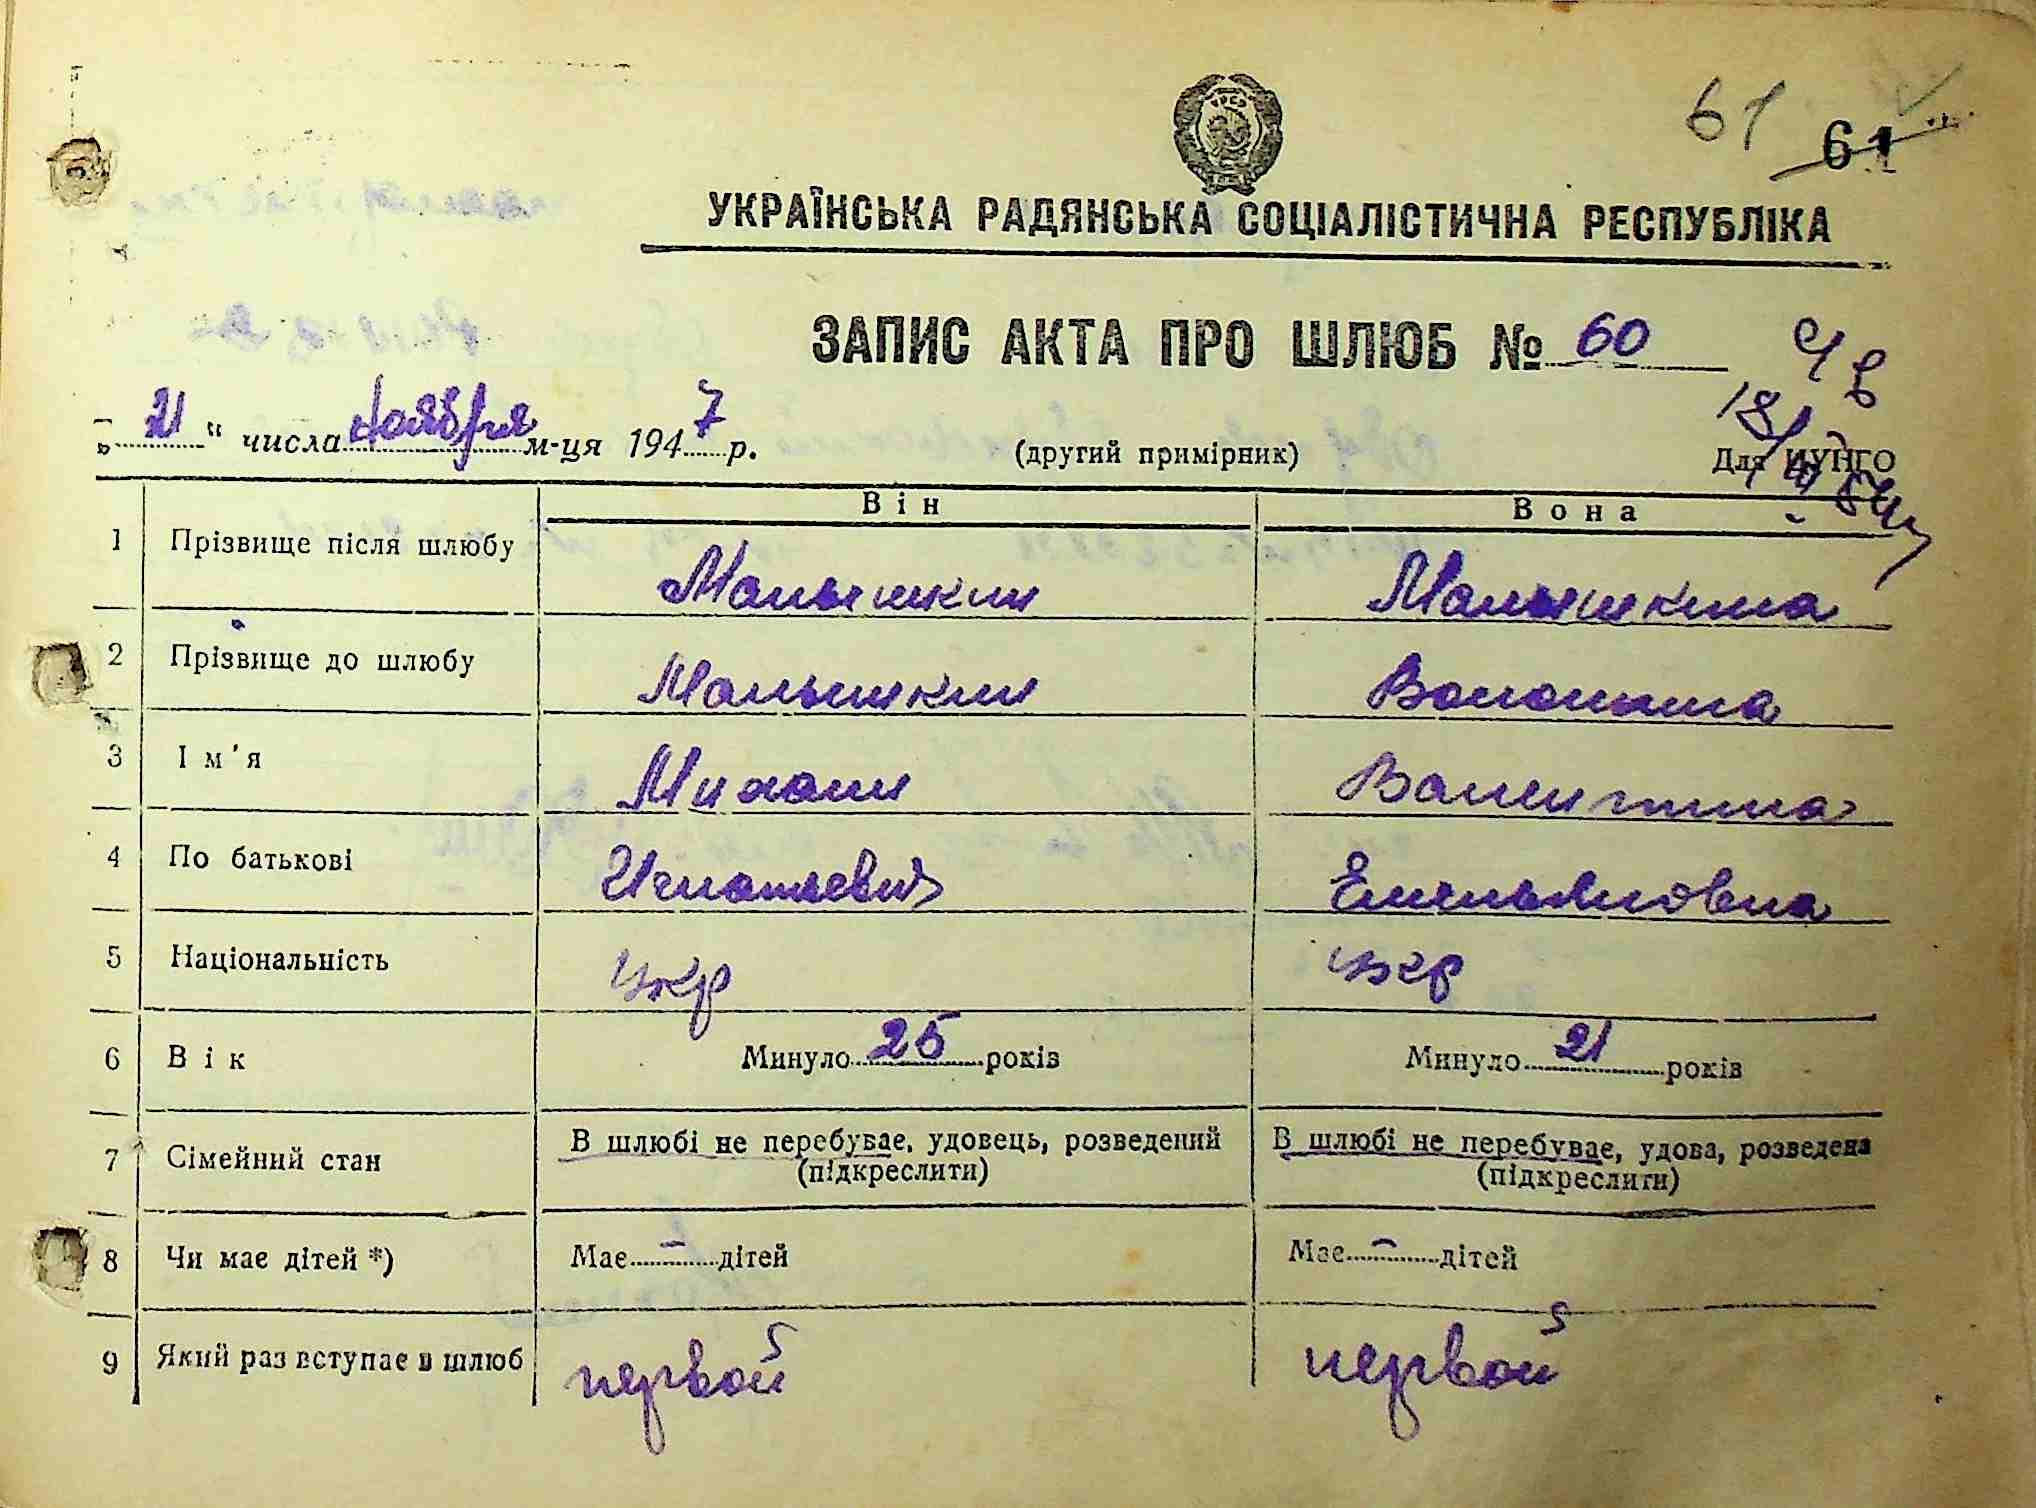 61 61
УРСР
УКРАЇНСЬКА РАДЯНСЬКА СОЦІАЛІСТИЧНА РЕСПУБЛІКА
ЗАПИС АКТА ПРО ШЛЮБ № 60
„21" числа ноября м-ця 1947 р. (другий примірник) Для ЦУНГО
Він Вона
1 Прізвище після шлюбу Малышкин Малышкина
2 Прізвище до шлюбу Малышкин Волошина
3 Ім'я Михаил Валентина
4 По батькові Игнатьевич Емельяновна
5 Національність укр укр
6 Вік Минуло 25 років Минуло 21 років
7 Сімейний стан В шлюбі не перебуває, удовець, розведений В шлюбі не перебуває, удова, розведена
(підкреслити) (підкреслити)
8 Чи має дітей *) Має - дітей Має - дітей
9 Який раз вступає в шлюб первой первой